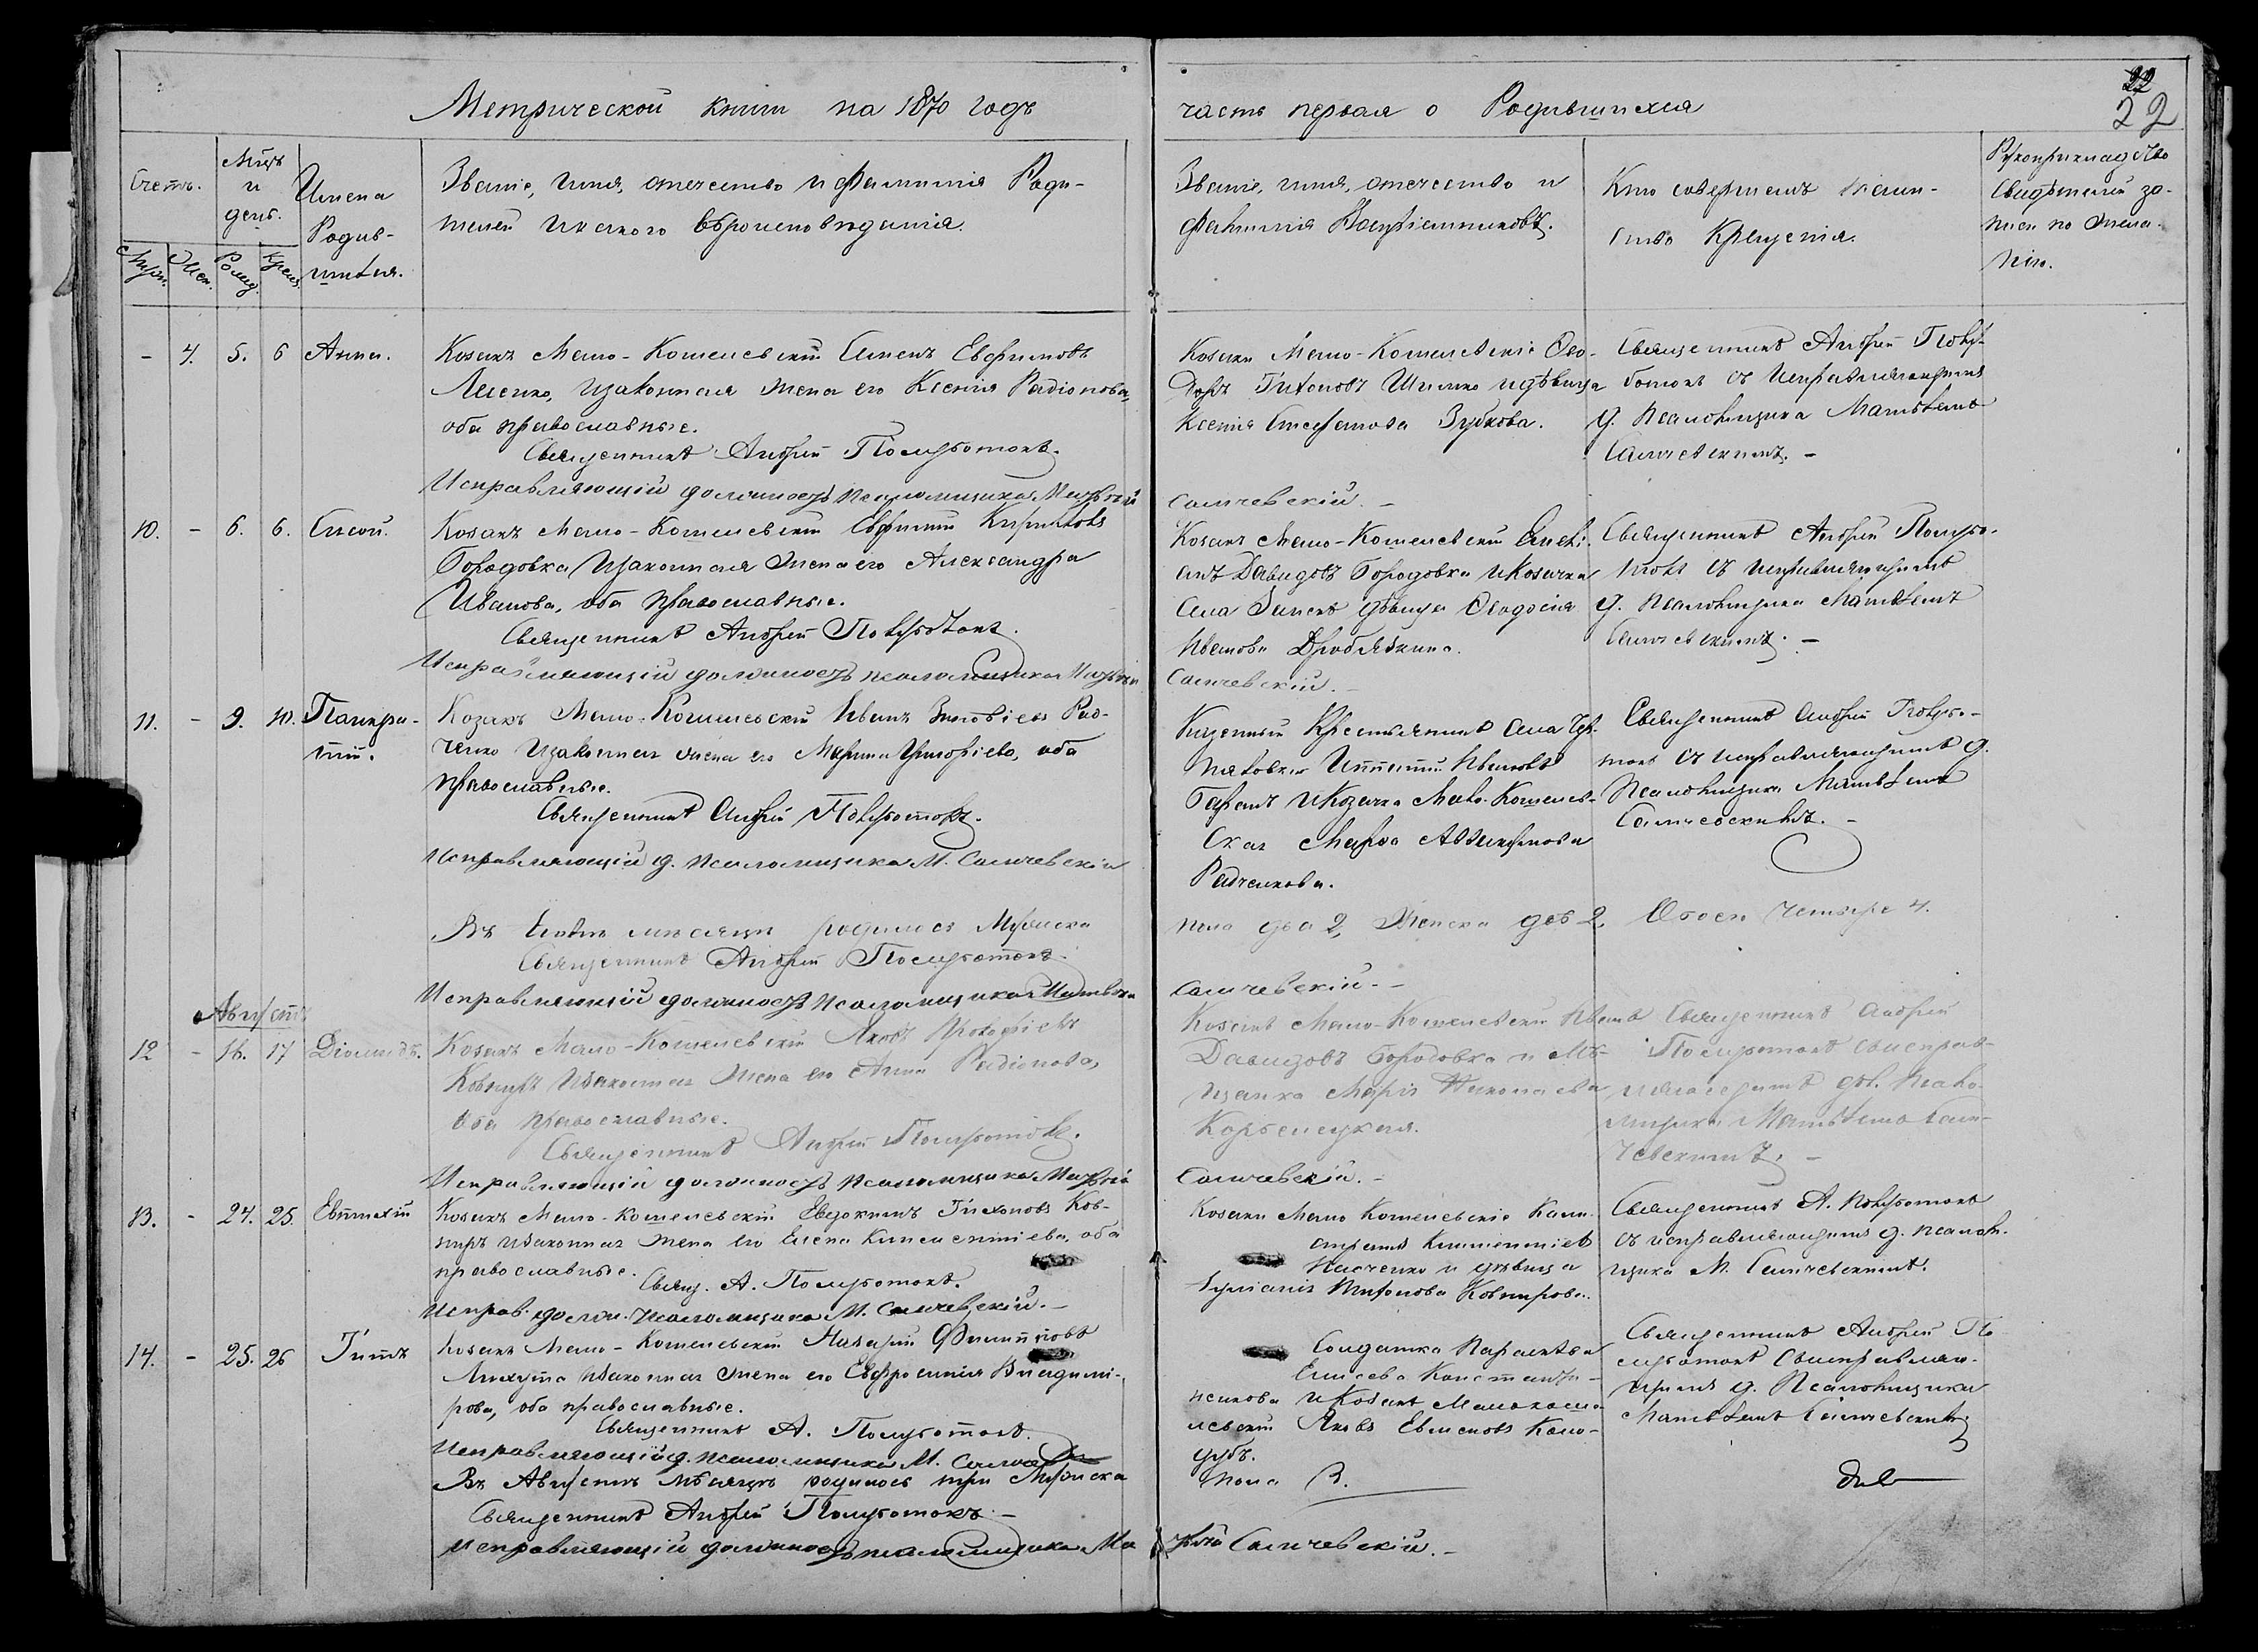 Метрической книги на 1870 годъ
часть первая о Родившихся
22
22
Счетъ.
Мѣцъ
и
день.
Имена
Родив-
шихся.
Муж.
Жен.
Рожд.
Крещ.
Званіе, имя, отечество и фамилія Роди-
телей и какого вѣроисповѣданія.
Званіе, имя, отечество и
фамилія Воспріемниковъ.
Кто совершалъ таин-
ство Крещенія.
Рукоприкладство
Свидѣтелей за-
писи по жела-
нію.
- 4. 5. 6 Анна.
Козакъ Мало-Кошелевскій Симеонъ Евфимовъ
Лешенко, и законная жена его Ксенія Радіонова,
оба православные.
Священникъ Андрей Полуботокъ.
Исправляющій должность псаломщика Матвѣй
Козаки Мало-Кошелевскіе Ѳео-
доръ Тихоновъ Шишко и дѣвица
Ксенія Стефанова Зубкова.
Самчевскій. -
Священникъ Андрей Полу-
ботокъ съ исправляющимъ
д. псаломщика Матвѣемъ
Самчевскимъ. -
10. - 6. 6. Сисой.
Козакъ Мало-Кошелевскій Евфимій Кириловъ
Бородовка и законная жена его Александра
Иванова, оба православные.
Священникъ Андрей Полуботокъ.
Исправляющій должность псаломщика Матвѣй
Козакъ Мало-Кошелевскій
Давидовъ Бородовка и козачка
села дѣвица Ѳеодосія
Иванова
Самчевскій. -
Священникъ Андрей Полубо-
токъ съ исправляющимъ
д. псаломщика Матвѣемъ
Самчевскимъ. -
11. - 9. 10. Панкра-
тій.
Козакъ Мало-Кошелевскій Иванъ Зиновіевъ Рад-
ченко и законная жена его Марина Григоріева, оба
православные.
Священникъ Андрей Полуботокъ.
Исправляющій д. псаломщика М. Самчевскій
Казенный Крестьянинъ села
Ипатій Ивановъ
и козачка Мало-Кошелев-
ская Марѳа
Радченкова.
Священникъ Андрей Полубо-
токъ съ исправляющимъ д.
псаломщика Матвѣемъ
Самчевскимъ. -
Въ Іюлѣ мѣсяцѣ родилось Мужеска
пола два 2, Женска двѣ 2. Обоего Четыре 4.
Священникъ Андрей Полуботокъ.
Исправляющій должность псаломщика Матвѣй
Самчевскій. -
Августъ
12 - 16. 17 Діомидъ.
Козакъ Мало-Кошелевскій Яковъ Прокофіевъ
Ковниръ и законная жена его Анна Радіонова,
оба православные.
Священникъ Андрей Полуботокъ.
Исправляющій должность псаломщика Матвѣй
Козакъ Мало-Кошелевскій Иванъ
Давидовъ Бородовка и Мѣ-
щанка Марія Николаева
Корбелецкая.
Самчевскій. -
Священникъ Андрей
Полуботокъ съ исправ-
ляющимъ дол. псало-
мщика Матвѣемъ Сам-
чевскимъ. -
13. - 24. 25. Евтихій
Козакъ Мало-Кошелевскій Евдокимъ Тихоновъ Ков-
ниръ и законная жена его Елена Климентіева, оба
православные.
Свящ. А. Полуботокъ.
Исправ. должн. псаломщика М. Самчевскій. -
Козаки Мало Кошелевскіе
Климентіевъ
и дѣвица
Іуліанія Тихонова Ковнирова.
Священникъ А. Полуботокъ
съ исправляющимъ д. псалом-
щика М. Самчевскимъ.
14. - 25. 26 Титъ
Козакъ Мало-Кошелевскій Назарій Филиповъ
Лихута и законная жена его Евфросинія Владими-
рова, оба православные.
Священникъ А. Полуботокъ.
Исправляющій д. псаломщика М.
Солдатка Параскева
Елисеева Констант-
и Козакъ Малокоше-
левскій Яковъ
Священникъ Андрей По-
луботокъ съ исправляю-
щимъ д. Псаломщика
Матвѣемъ Самчевскимъ.
Въ Августѣ мѣсяцѣ родилось три Мужеска
пола 3.
Священникъ Андрей Полуботокъ. -
Исправляющій должность псаломщика Ма
твѣй Самчевскій. -